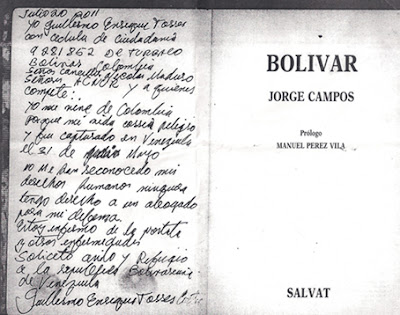 Julio 20 2011
Yo Guillermo Enrique Torres
con cedula de ciudadania
9281852 DE TURBACO
Bolivar Colombia
Señor canciller Nicolas Maduro
Señores ACNUR y a quienes
compete:
Yo me vine de Colombia
porque mi vida corria peligro
y fui capturado en Venezuela
el 31 de Mayo
no me han reconocido mis
derechos humanos ninguno
tengo derecho a un abogado
para mi defensa.
Estoy enfermo de la prostata
y otras enfermedades
Solicito asilo y Refugio
a la republica Bolivariana
de Venezuela
Guillermo Enrique Torres
BOLIVAR
JORGE CAMPOS
Prólogo
MANUEL PEREZ VILA
SALVAT